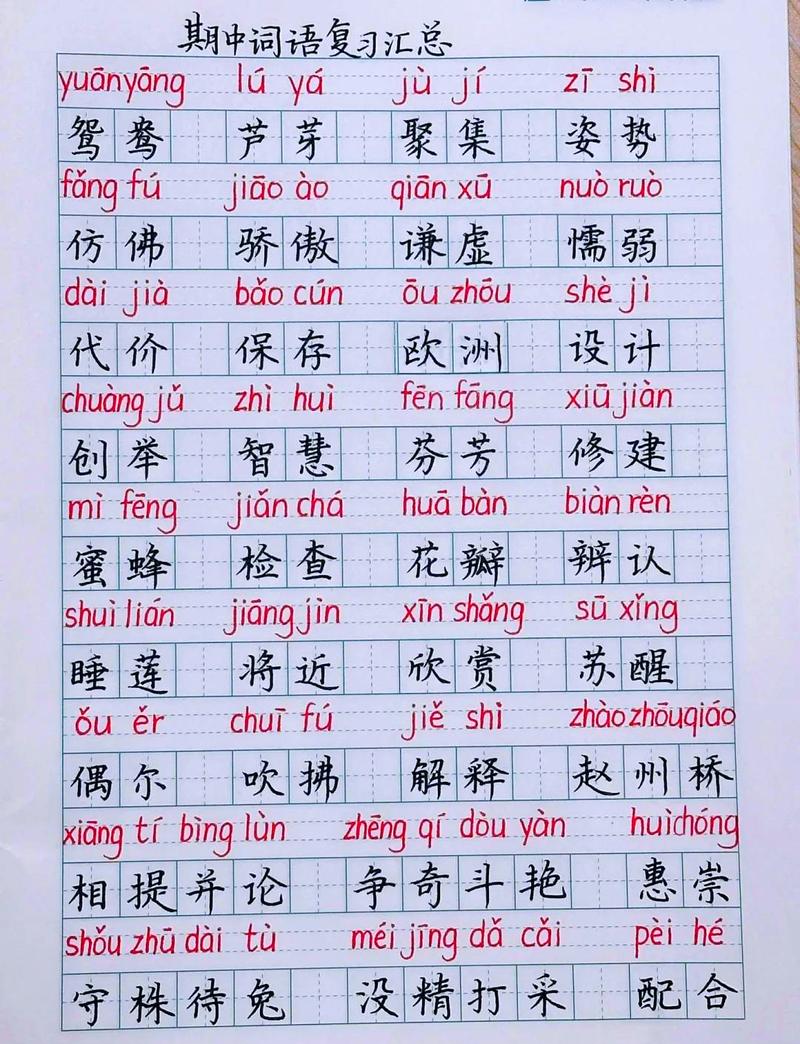 期中词语复习汇总
yuānyāng lú yá jù jí zī shì
鸳鸯 芦芽 聚集 姿势
fǎng fú jiāo ào qiān xū nuò ruò
仿佛 骄傲 谦虚 懦弱
dài jià bǎo cún ōu zhōu shè jì
代价 保存 欧洲 设计
chuàng jǔ zhì huì fēn fāng xiū jiàn
创举 智慧 芬芳 修建
mì fēng jiǎn chá huā bàn biàn rèn
蜜蜂 检查 花瓣 辨认
shuì lián jiāng jìn xīn shǎng sū xǐng
睡莲 将近 欣赏 苏醒
ǒu ěr chuī fú jiě shì zhào zhōu qiáo
偶尔 吹拂 解释 赵州桥
xiāng tí bìng lùn zhēng qí dòu yàn huì chóng
相提并论 争奇斗艳 惠崇
shǒu zhū dài tù méi jīng dǎ cǎi pèi hé
守株待兔 没精打采 配合